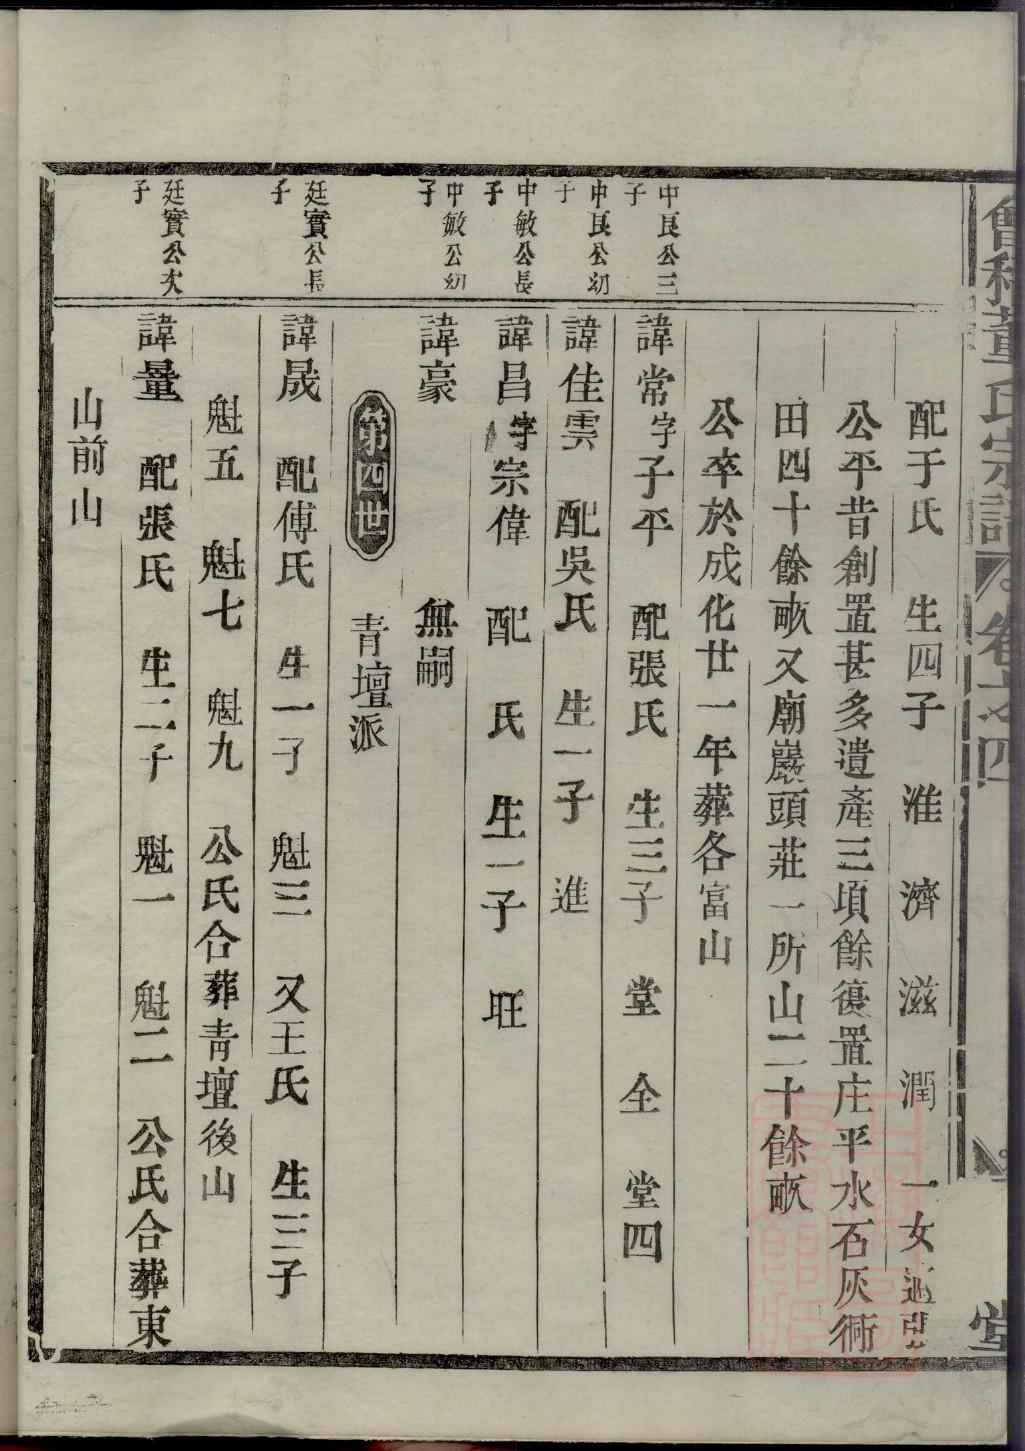 會稽董氏宗譜 卷之四 堂
配于氏 生四子 淮 濟 滋 潤 一女適
公平昔創置甚多遺產三項餘復置庄平水石灰衕
田四十餘畝又廟巖頭莊一所山二十餘畝
公卒於成化廿一年葬各富山
中良公三子
諱常字子平 配張氏 生三子 堂 全 堂四
中良公幼子
諱佳雲 配吳氏 生一子 進
中敏公長子
諱昌字宗偉 配 氏 生一子 旺
中敏公幼子
諱豪 無嗣
第四世 青壇派
廷實公長子
諱晟 配傅氏 生一子 魁三 又王氏 生三子
魁五 魁七 魁九 公氏合葬青壇後山
廷實公次子
諱量 配張氏 生二子 魁一 魁二 公氏合葬東
山前山